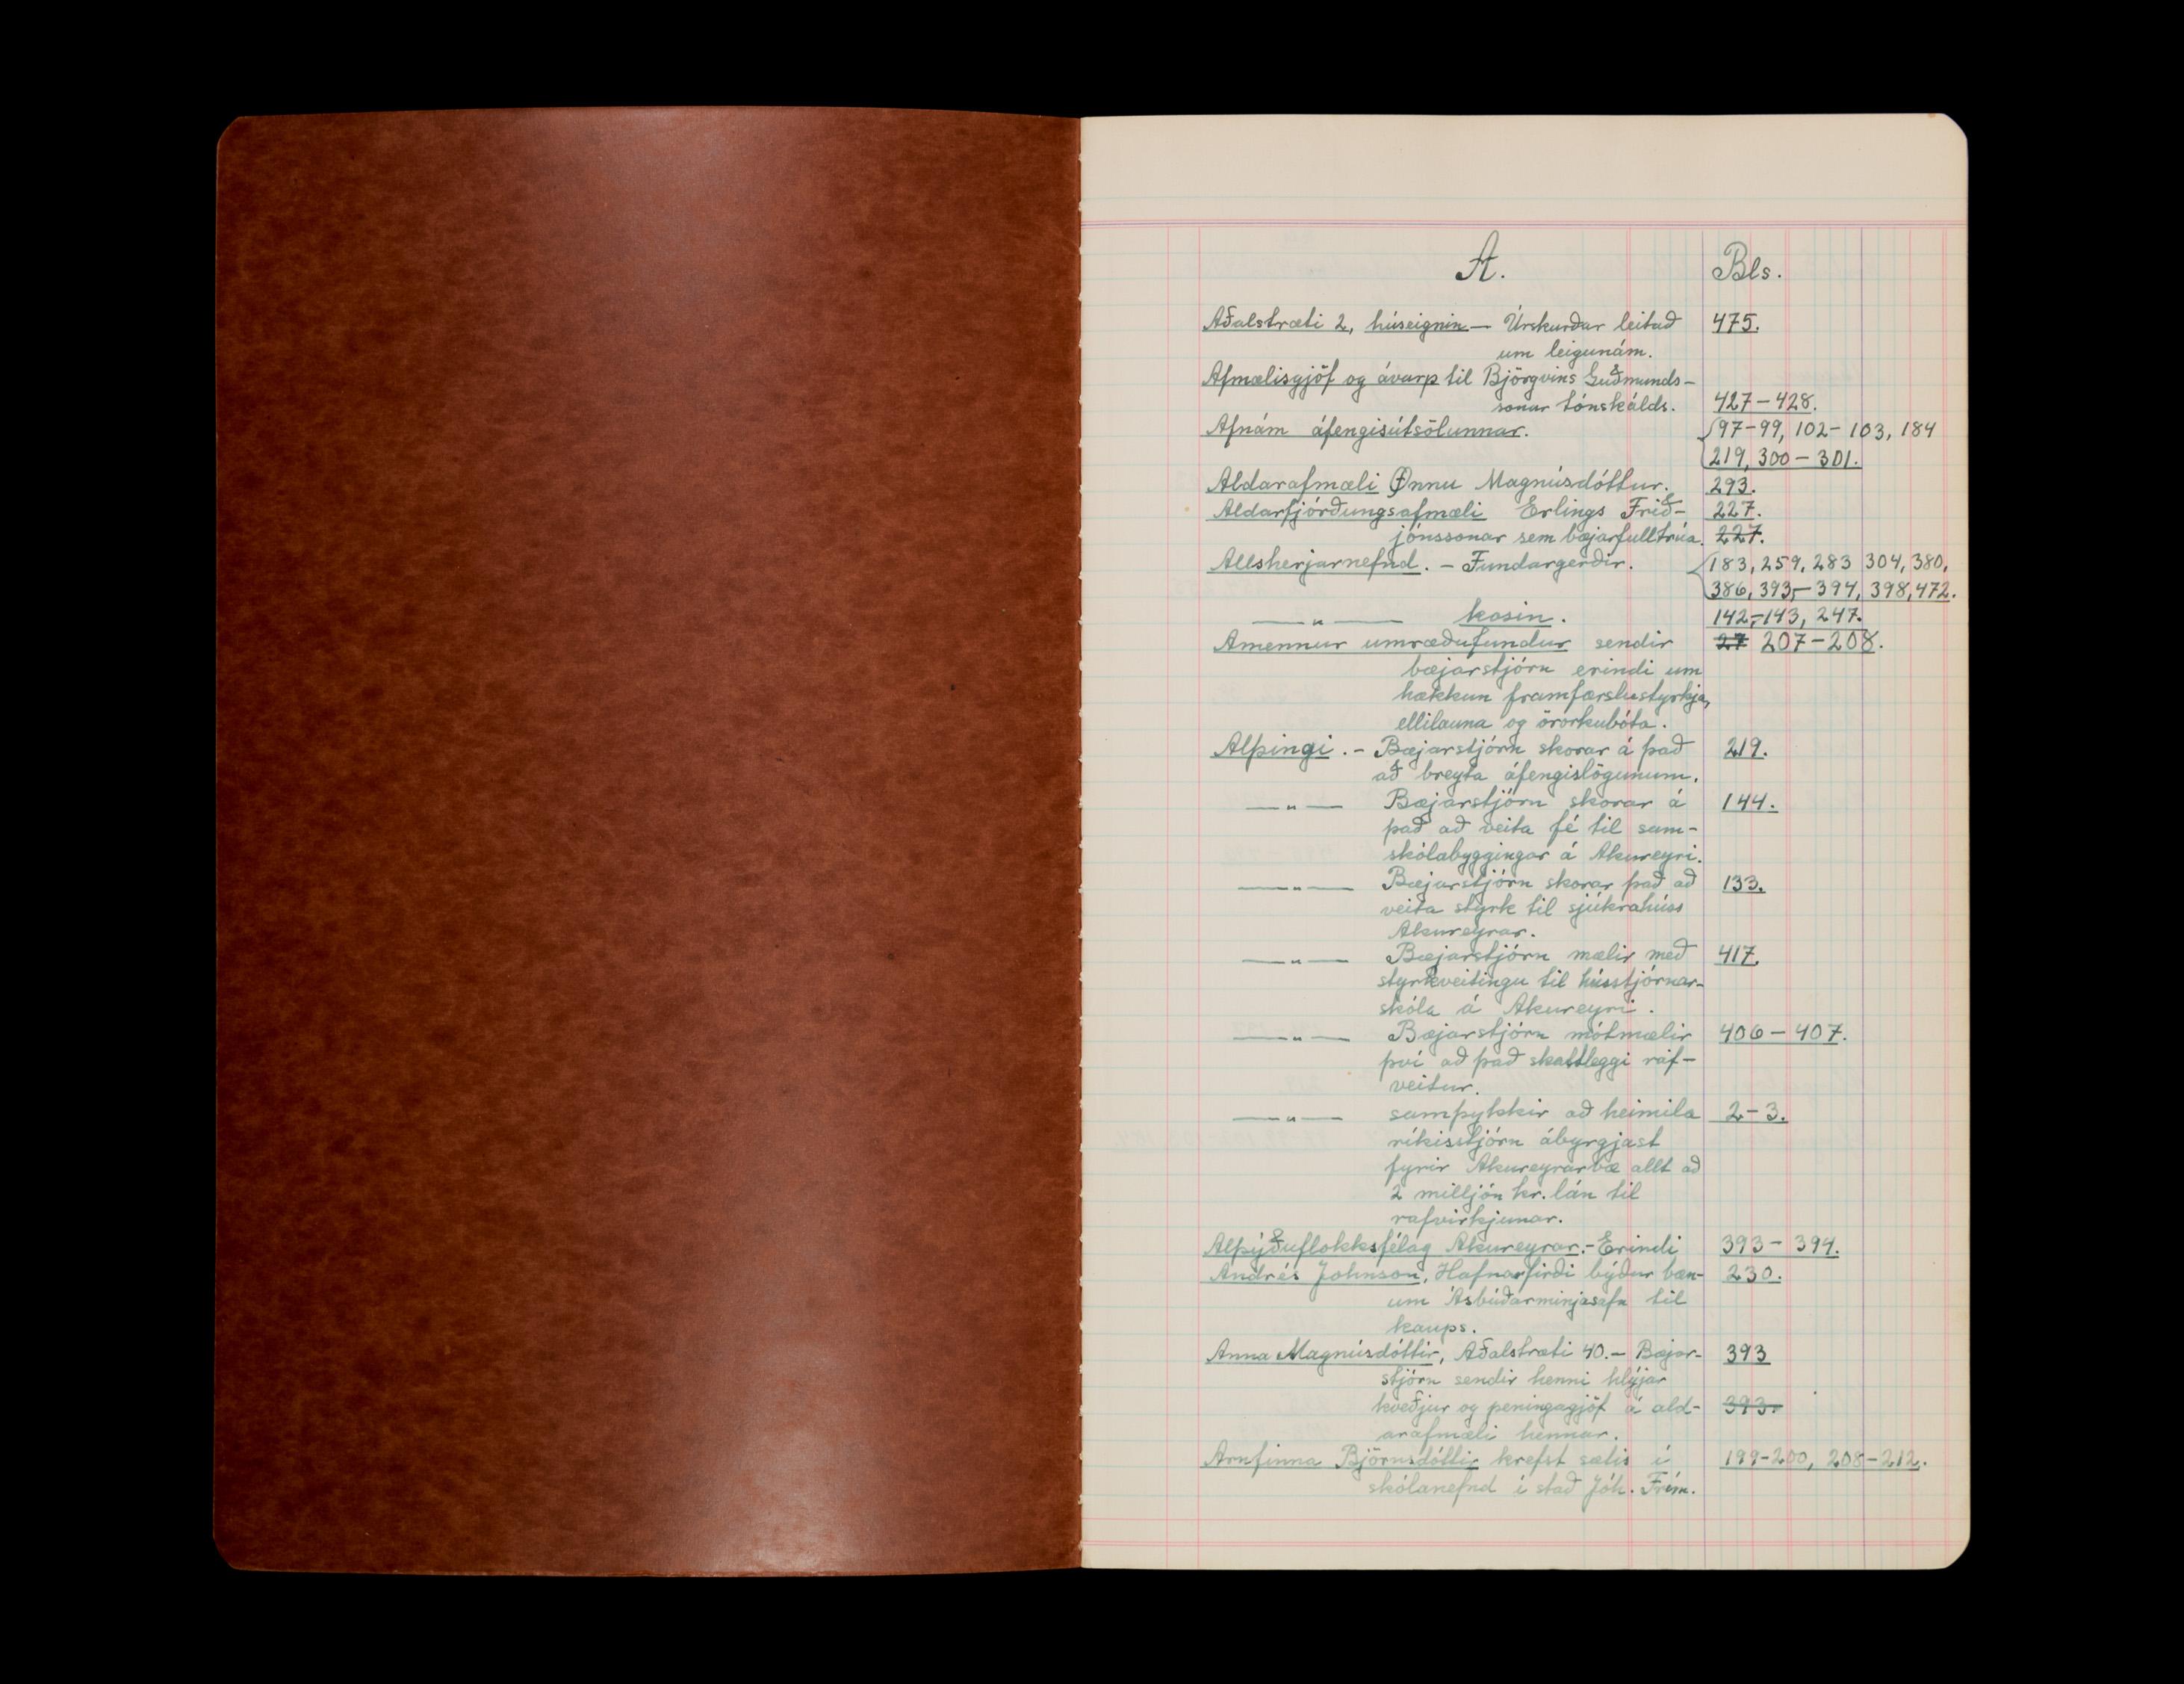 A. Bls.
Aðalstræti 2, húseignin — Úrskurðar leitað 475.
um leigunám.
Afmælisgjöf og ávarp til Björgvins Guðmunds-
sonar tónskálds. 427-428.
Afnám áfengisútsölunnar. 97-99, 102-103, 184
219, 300-301.
Aldarafmæli Önnu Magnúsdóttur. 293.
Aldarfjórðungsafmæli Erlings Frið- 227.
jónssonar sem bæjarfulltrúa. 227.
Allsherjarnefnd. - Fundargerðir. 183, 259, 283 304, 380,
386, 393-394, 398, 472.
—"— kosin. 142-143, 247.
Amennur umræðufundur sendir 27 207-208.
bæjarstjórn erindi um
hækkun framfærslustyrkja,
ellilauna og örorkubóta.
Alþingi. - Bæjarstjórn skorar á það 219.
að breyta áfengislögunum.
—"— Bæjarstjórn skorar á 144.
það að veita fé til sam-
skólabyggingar á Akureyri.
—"— Bæjarstjórn skorar það að 133.
veita styrk til sjúkrahúss
Akureyrar.
—"— Bæjarstjórn mælir með 417.
styrkveitingu til hússtjórnar-
skóla á Akureyri.
—"— Bæjarstjórn mótmælir 406-407.
því að það skattleggi raf-
veitur.
—"— samþykkir að heimila 2-3.
ríkisstjórn ábyrgjast
fyrir Akureyrarbæ allt að
2 milljón kr. lán til
rafvirkjunar.
Alþýðuflokksfélag Akureyrar. - Erindi 393-394.
Andrés Johnson, Hafnarfirði býður bæn- 230.
um Ásbúðarminjasafn til
kaups.
Anna Magnúsdóttir, Aðalstræti 40. - Bæjar- 393
stjórn sendir henni hlýjar
kveðjur og peningagjöf á ald- 393.
arafmæli hennar.
Arnfinna Björnsdóttir krefst sætis í 199-200, 208-212.
skólanefnd í stað Jóh. Frím.